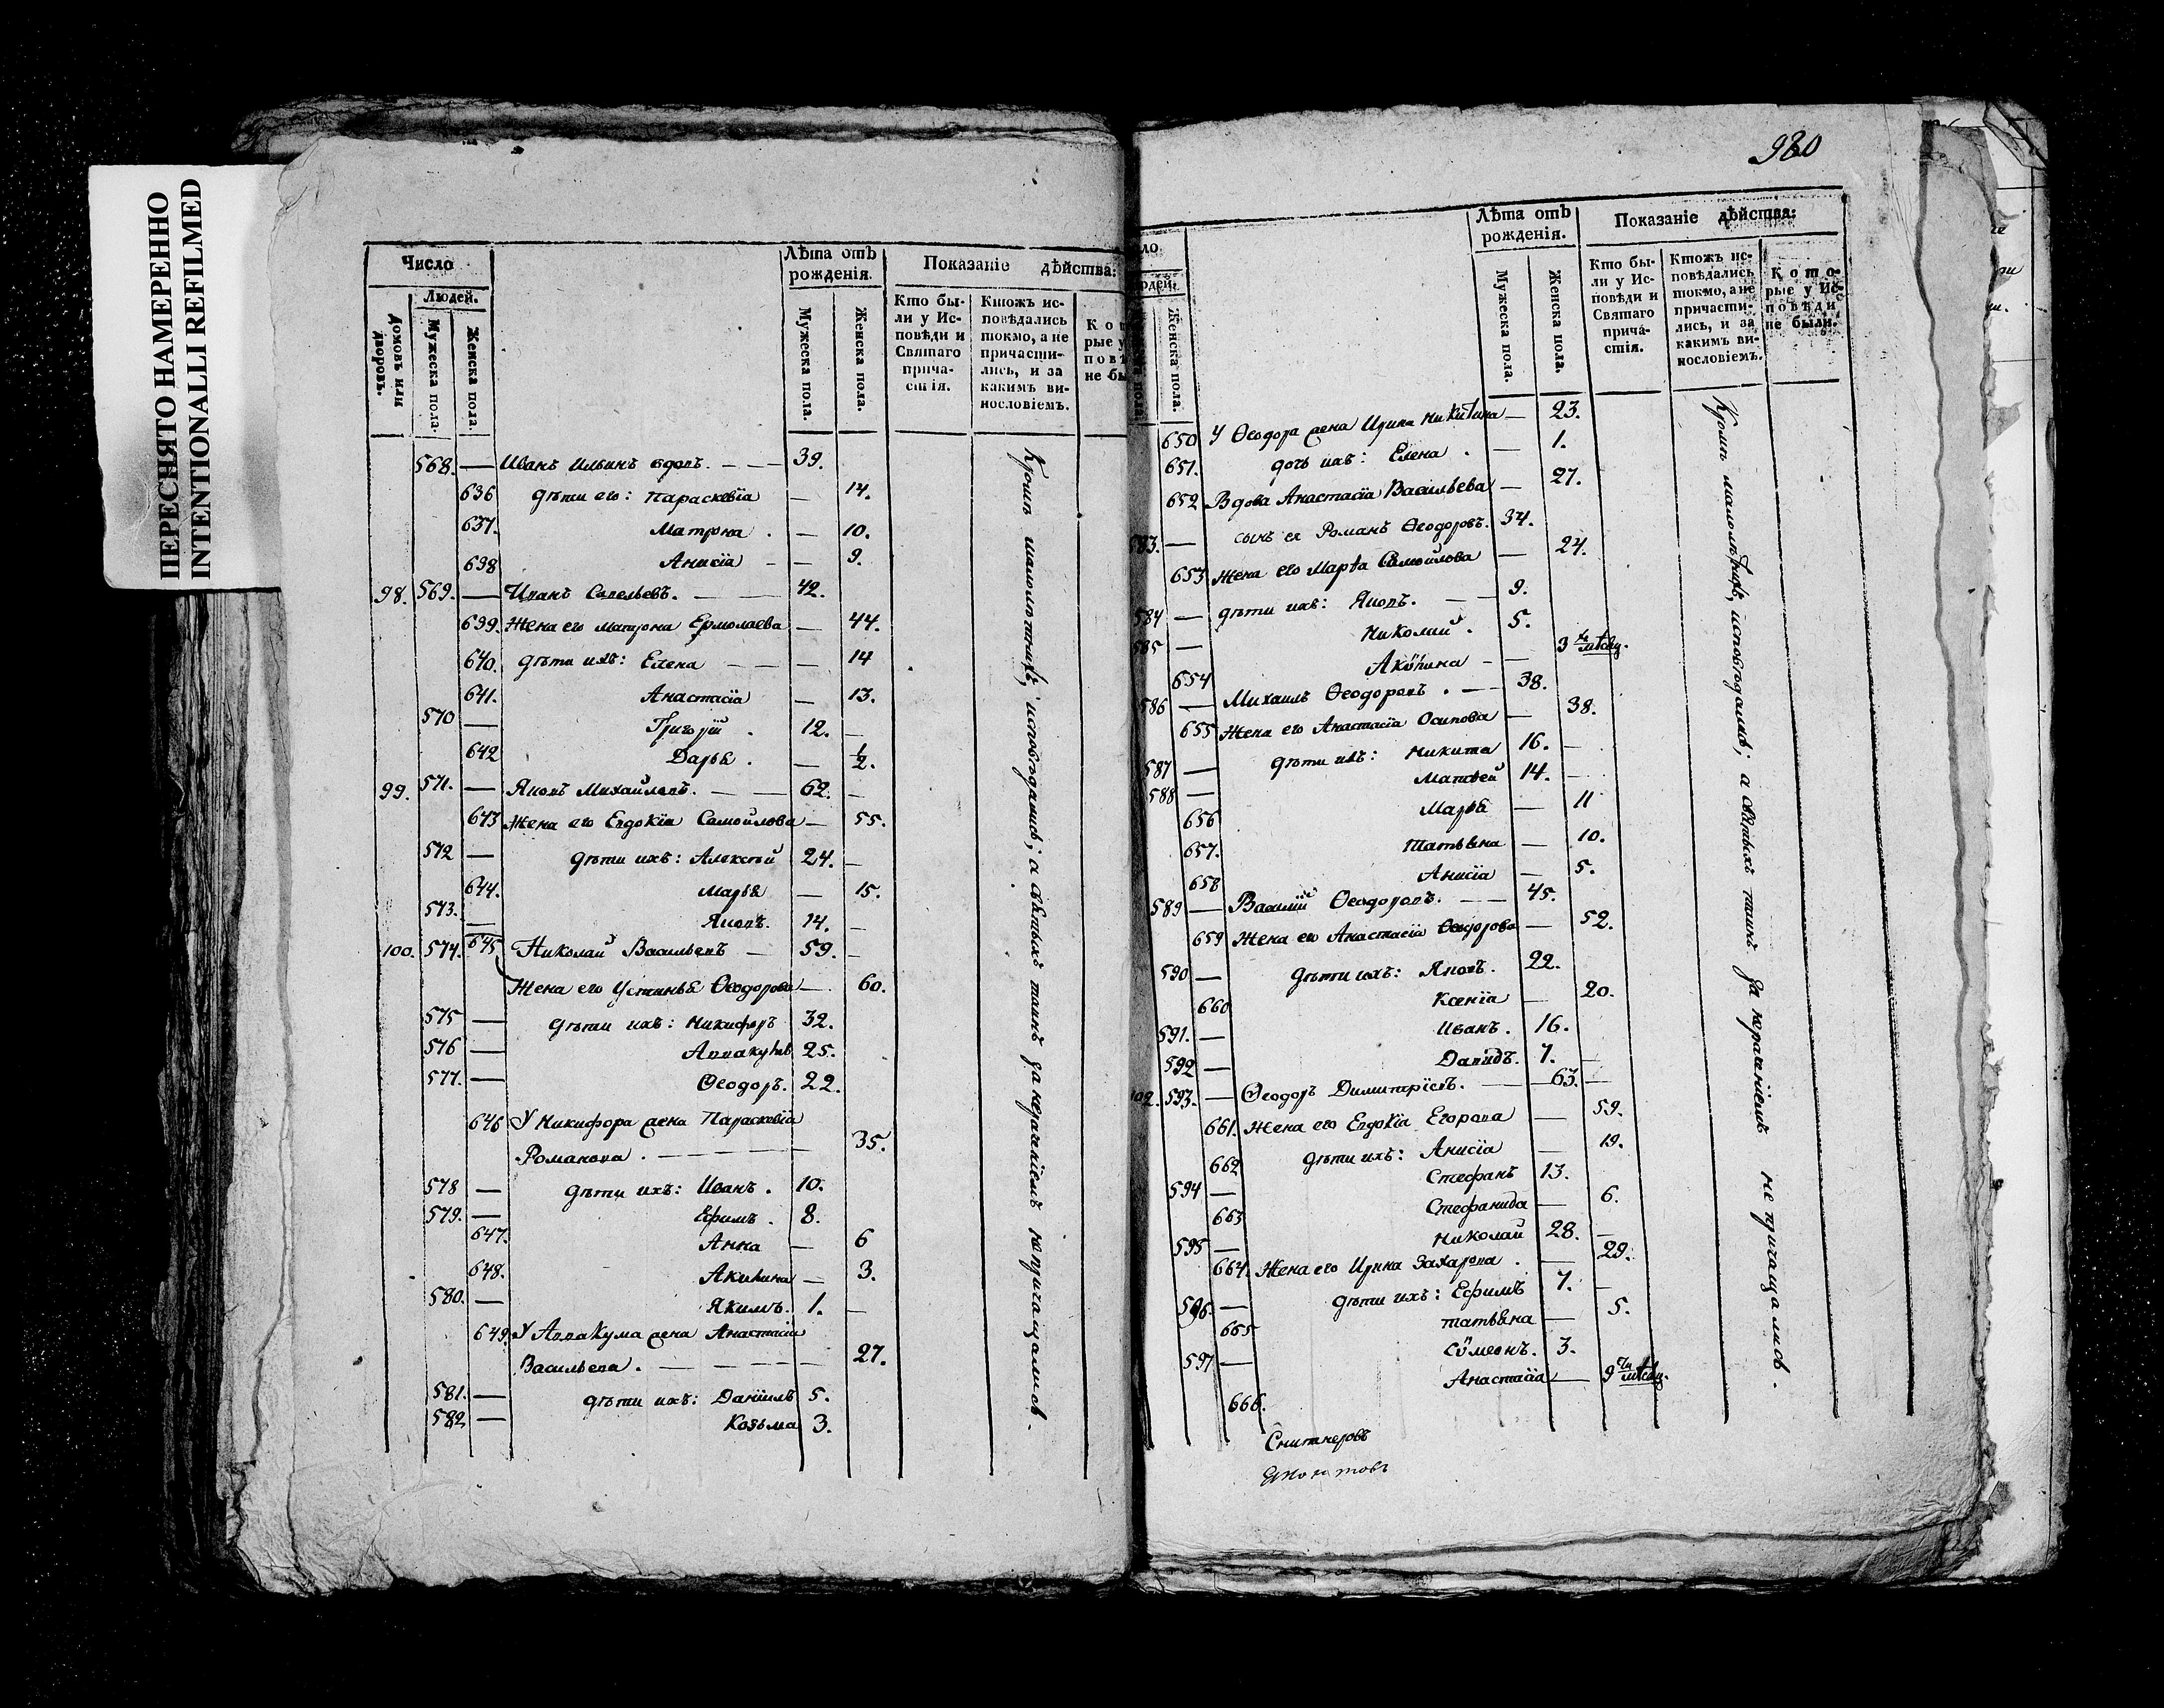 ПЕРЕСНЯТО НАМЕРЕННО
INTENTIONALLI REFILMED
Число
Людей.
домовъ или дворовъ.
Мужеска пола.
Женска пола.
Лѣта отъ рожденія.
Мужеска пола.
Женска пола.
Показаніе дѣйства:
Кто бы-
ли у Ис-
повѣди и
Святаго
прича-
стія.
Ктожъ ис-
повѣдались
токмо, а не
причасти-
лись, и за
какимъ ви-
нословіемъ.
568. — Иванъ Ильинъ вдовъ. — 39.
636 дѣти его: Параскевїа — 14.
637. Матрона — 10.
638 Анисїа — 9.
98. 569. — Иванъ Савельевъ. — 42.
639. Жена его Матрона Ермолаева — 44.
640. дѣти ихъ: Елена — 14
641. Анастасїа — 13.
570 — Григорїй 12. —
642 Дарьѧ — ½.
99. 571. — Яковъ Михайловъ. — 62. —
643 Жена его Евдокїа Самойлова — 55.
572 — дѣти ихъ: Алексѣй 24. —
644. Марьѧ — 15.
573. — Яковъ. 14. —
100. 574. 645. Николай Васильевъ — 59. —
Жена его Устиньѧ Ѳеодорова — 60.
575 — дѣти ихъ: Никифоръ 32.
576 — Аввакумъ 25.
577. — Ѳеодоръ. 22.
646 У Никифора жена Параскевїа
Романова. — 35.
578 — дѣти ихъ: Иванъ. 10.
579. — Ефимъ. 8.
647. Анна — 6
648. Акилина — 3.
580. — Якимъ. 1. —
649. У Аввакума жена Анастасїа
Васильева. — 27.
581. — дѣти ихъ: Данїилъ 5.
582 — Козьма 3.
Кромѣ малолѣтнихъ, исповѣдались; а свѧтыхъ таинъ за нераченїемъ не причащались.
980
Женска пола.
Лѣта отъ
рожденія.
Мужеска пола.
Женска пола.
Показаніе дѣйства:
Кто бы-
ли у Ис-
повѣди и
Святаго
прича-
стія.
Ктожъ ис-
повѣдались
токмо, а не
причасти-
лись, и за
какимъ ви-
нословіемъ.
Кото-
рые у Ис-
повѣди
не были.
650 У Ѳеодора жена Ирина Никитина — 23.
651. дочь ихъ: Елена — 1.
652 Вдова Анастасїа Васильева — 27.
583. — сынъ ея Романъ Ѳеодоровъ. 34.
653 Жена его Марѳа Самойлова — 24.
584 — дѣти ихъ: Яковъ. — 9.
585 — Николай. 5.
654 Акилина — 3
586 — Михаилъ Ѳеодоровъ. — 38.
655 Жена его Анастасїа Осипова — 38.
587 — дѣти ихъ: Никита 16. —
588 — Матвей 14. —
656 Марьѧ — 11
657. Татьѧна — 10.
658 Анисїа — 5.
589 — Василїй Ѳеодоровъ. — 45.
659 Жена его Анастасїа Ѳеодорова — 52.
590 — дѣти ихъ: Яковъ. 22.
660 Ксенїа — 20.
591. — Иванъ. 16.
592 — Давидъ. 7. —
102. 593. — Ѳеодоръ Димитрїевъ. — 63. —
661. Жена его Евдокїа Егорова — 59.
662 дѣти ихъ: Анисїа — 19.
594 — Стефанъ 13.
663 Стефанида — 6.
595 — Николай 28. —
664. Жена его Ирина Захарова. — 29.
596. — дѣти ихъ: Ефимъ 7. —
665 татьѧна — 5.
597 — Сѵмеонъ. 3.
666. Анастасїа — 9
Кромѣ малолѣтнихъ, исповѣдались; а свѧтыхъ таинъ за нераченїемъ не причащались.